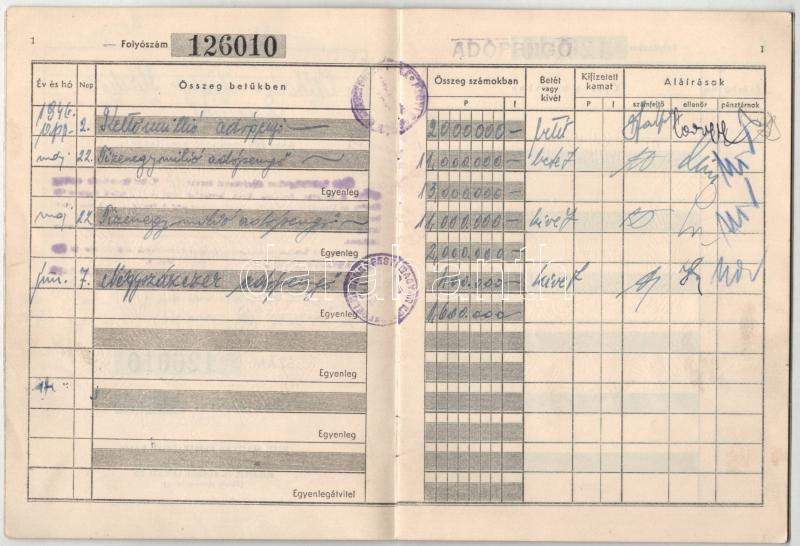 1
Folyószám 126010
ADÓPENGŐ
1
Év és hó Nap Összeg betűkben Összeg számokban Betét vagy kivét Kifizetett kamat Aláírások
P f P f számfejtő ellenőr pénztárnok
1946
2. Kettőmillió adópengő 2000000 betét
máj 22. Tizenegymillió adópengő 11,000.000 betét
Egyenleg 13,000.000
máj 22 Tizenegymillió adópengő 11,000.000 kivét
Egyenleg 2,000.000
jun. 7. Négyszázezer adópengő 400.000 kivét
Egyenleg 1,600.000
Egyenleg
Egyenleg
Egyenleg
Egyenlegátvitel
darabanth